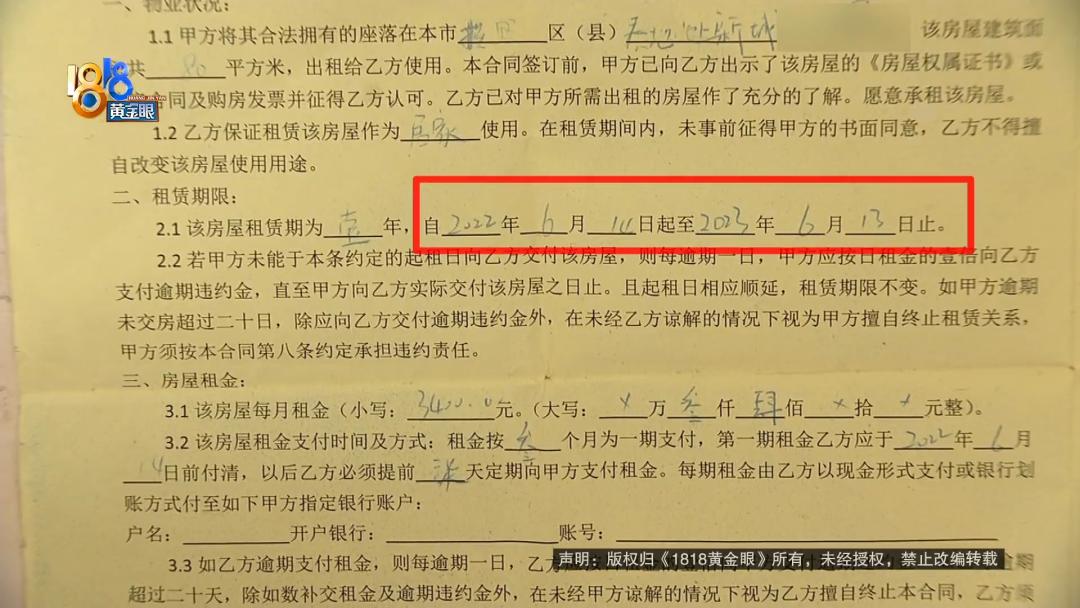 一、物业状况:
1.1 甲方将其合法拥有的座落在本市 区（县） 新城 该房屋建筑面
共 80 平方米，出租给乙方使用。本合同签订前，甲方已向乙方出示了该房屋的《房屋权属证书》或
合同及购房发票并征得乙方认可。乙方已对甲方所需出租的房屋作了充分的了解。愿意承租该房屋。
1818
HUANG JIN YAN
黄金眼
1.2 乙方保证租赁该房屋作为 居家 使用。在租赁期间内，未事前征得甲方的书面同意，乙方不得擅
自改变该房屋使用用途。
二、租赁期限：
2.1 该房屋租赁期为 壹 年，自 2022 年 6 月 14 日起至 2023 年 6 月 13 日止。
2.2 若甲方未能于本条约定的起租日向乙方交付该房屋，则每逾期一日，甲方应按日租金的壹倍向乙方
支付逾期违约金，直至甲方向乙方实际交付该房屋之日止。且起租日相应顺延，租赁期限不变。如甲方逾期
未交房超过二十日，除应向乙方交付逾期违约金外，在未经乙方谅解的情况下视为甲方擅自终止租赁关系，
甲方须按本合同第八条约定承担违约责任。
三、房屋租金：
3.1 该房屋每月租金（小写： 3400.0 元。（大写： × 万 叁 仟 肆 佰 × 拾 × 元整）。
3.2 该房屋租金支付时间及方式：租金按 叁 个月为一期支付，第一期租金乙方应于 2022 年 6 月
14 日前付清，以后乙方必须提前 柒 天定期向甲方支付租金。每期租金由乙方以现金形式支付或银行划
账方式付至如下甲方指定银行账户：
户名： 开户银行： 账号：
3.3 如乙方逾期支付租金，则每逾期一日，乙
声明：版权归《1818黄金眼》所有，未经授权，禁止改编转载
超过二十天，除如数补交租金及逾期违约金外，在未经甲方谅解的情况下视为乙方擅自终止合同关系，乙方须